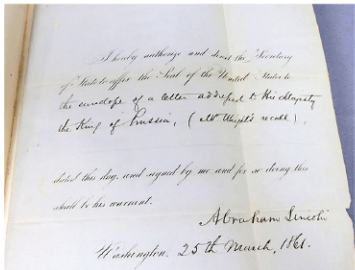 I hereby authorize and direct the Secretary
of State to affix the Seal of the United States to
the envelope of a letter addressed to His Majesty
the King of Prussia, (Mr Wright's recall).
dated this day, and signed by me and for so doing this
shall be his warrant.
Abraham Lincoln
Washington, 25th March, 1861.